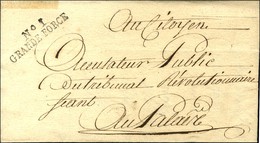 N° 1
GRANDE FORCE
Au Citoyen
Acusateur Public
Du tribunal Révolutionnaire
seant
Au Palais